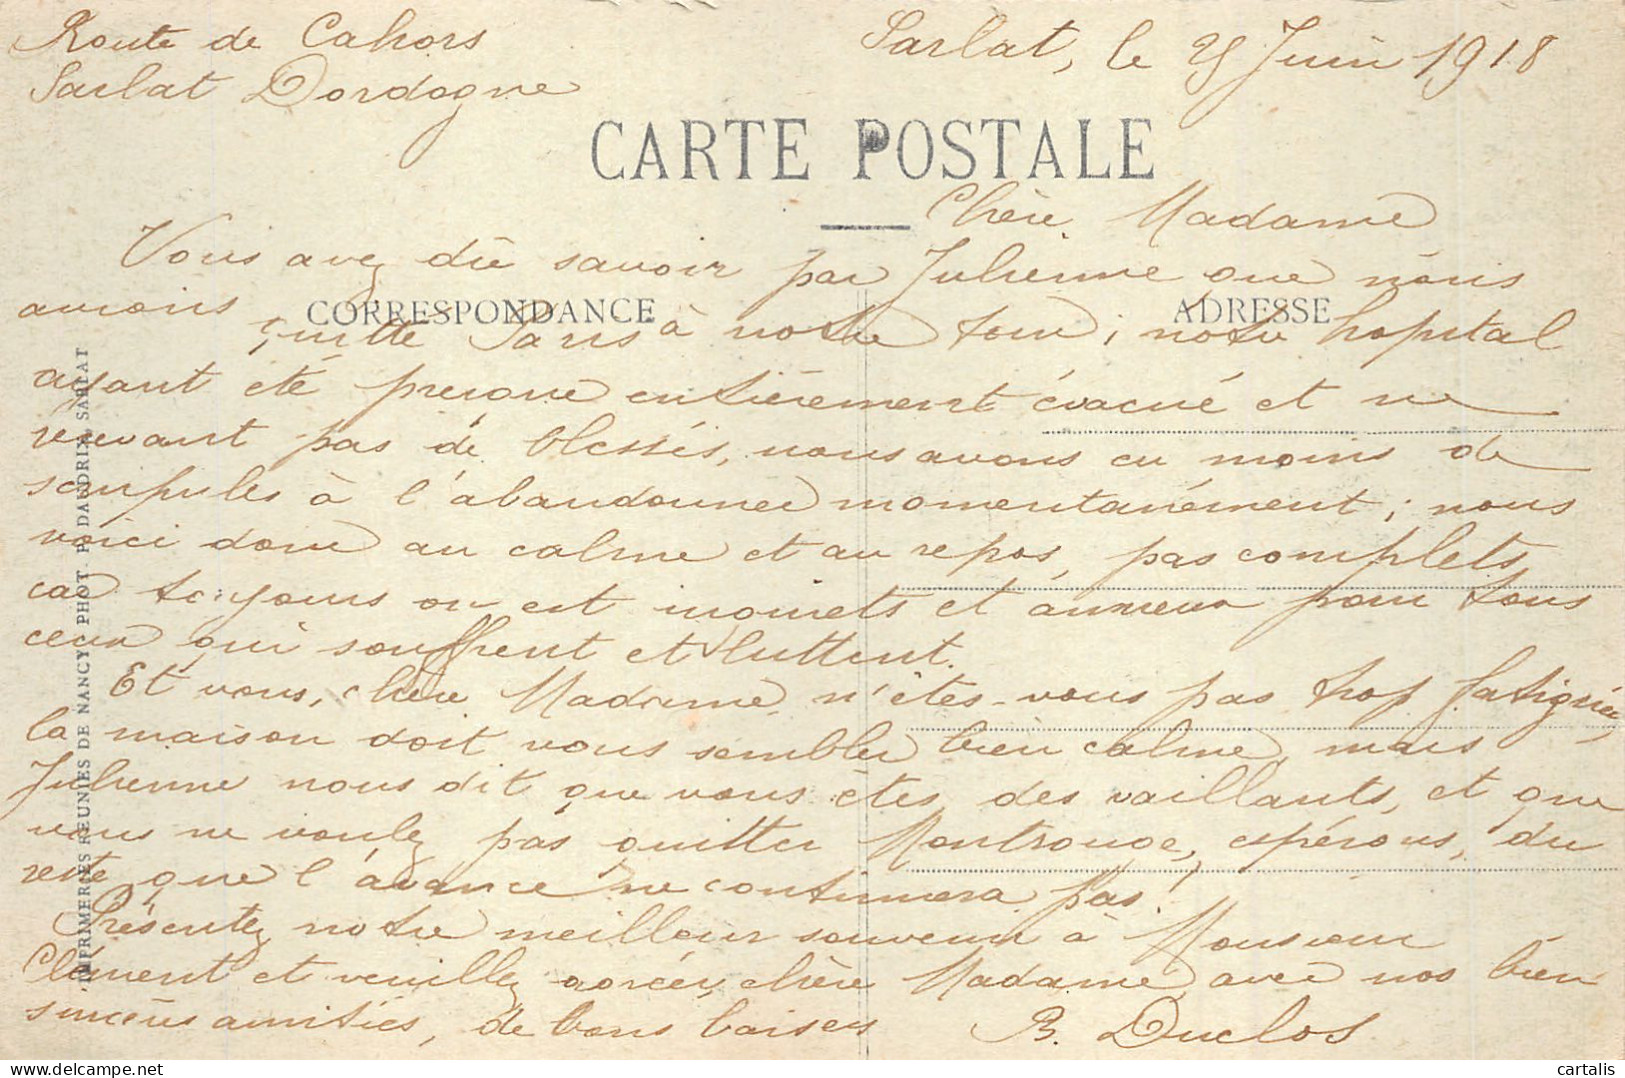 Route de Cahors
Sarlat Dordogne
Sarlat, le Juin 1918
CARTE POSTALE
Chère Madame
Vous avez dû savoir par Julienne que nous
CORRESPONDANCE
ADRESSE
avions quitté Paris à notre tour ; notre hopital
ayant été presque entièrement évacué et ne
recevant pas de blessés, nous avons eu moins de
scrupules à l'abandonner momentanément ; nous
voici donc au calme et au repos, pas complets
car toujours on est inquiets et anxieux pour tous
ceux qui souffrent et luttent.
Et vous, chère Madame n'êtes-vous pas trop fatiguée,
la maison doit vous sembler bien calme, mais
Julienne nous dit que vous êtes des vaillants, et que
vous ne voulez pas quitter Montrouge, espérons, du
reste que l'avance ne continuera pas !
Présentez notre meilleur souvenir à Monsieur
Clément et veuillez agréer, chère Madame, avec nos bien
sincères amitiés, de bons baisers
B. Duclos
IMPRIMERIES REUNIES DE NANCY. PHOT. P. DAUDRIX, SARLAT
cartalis